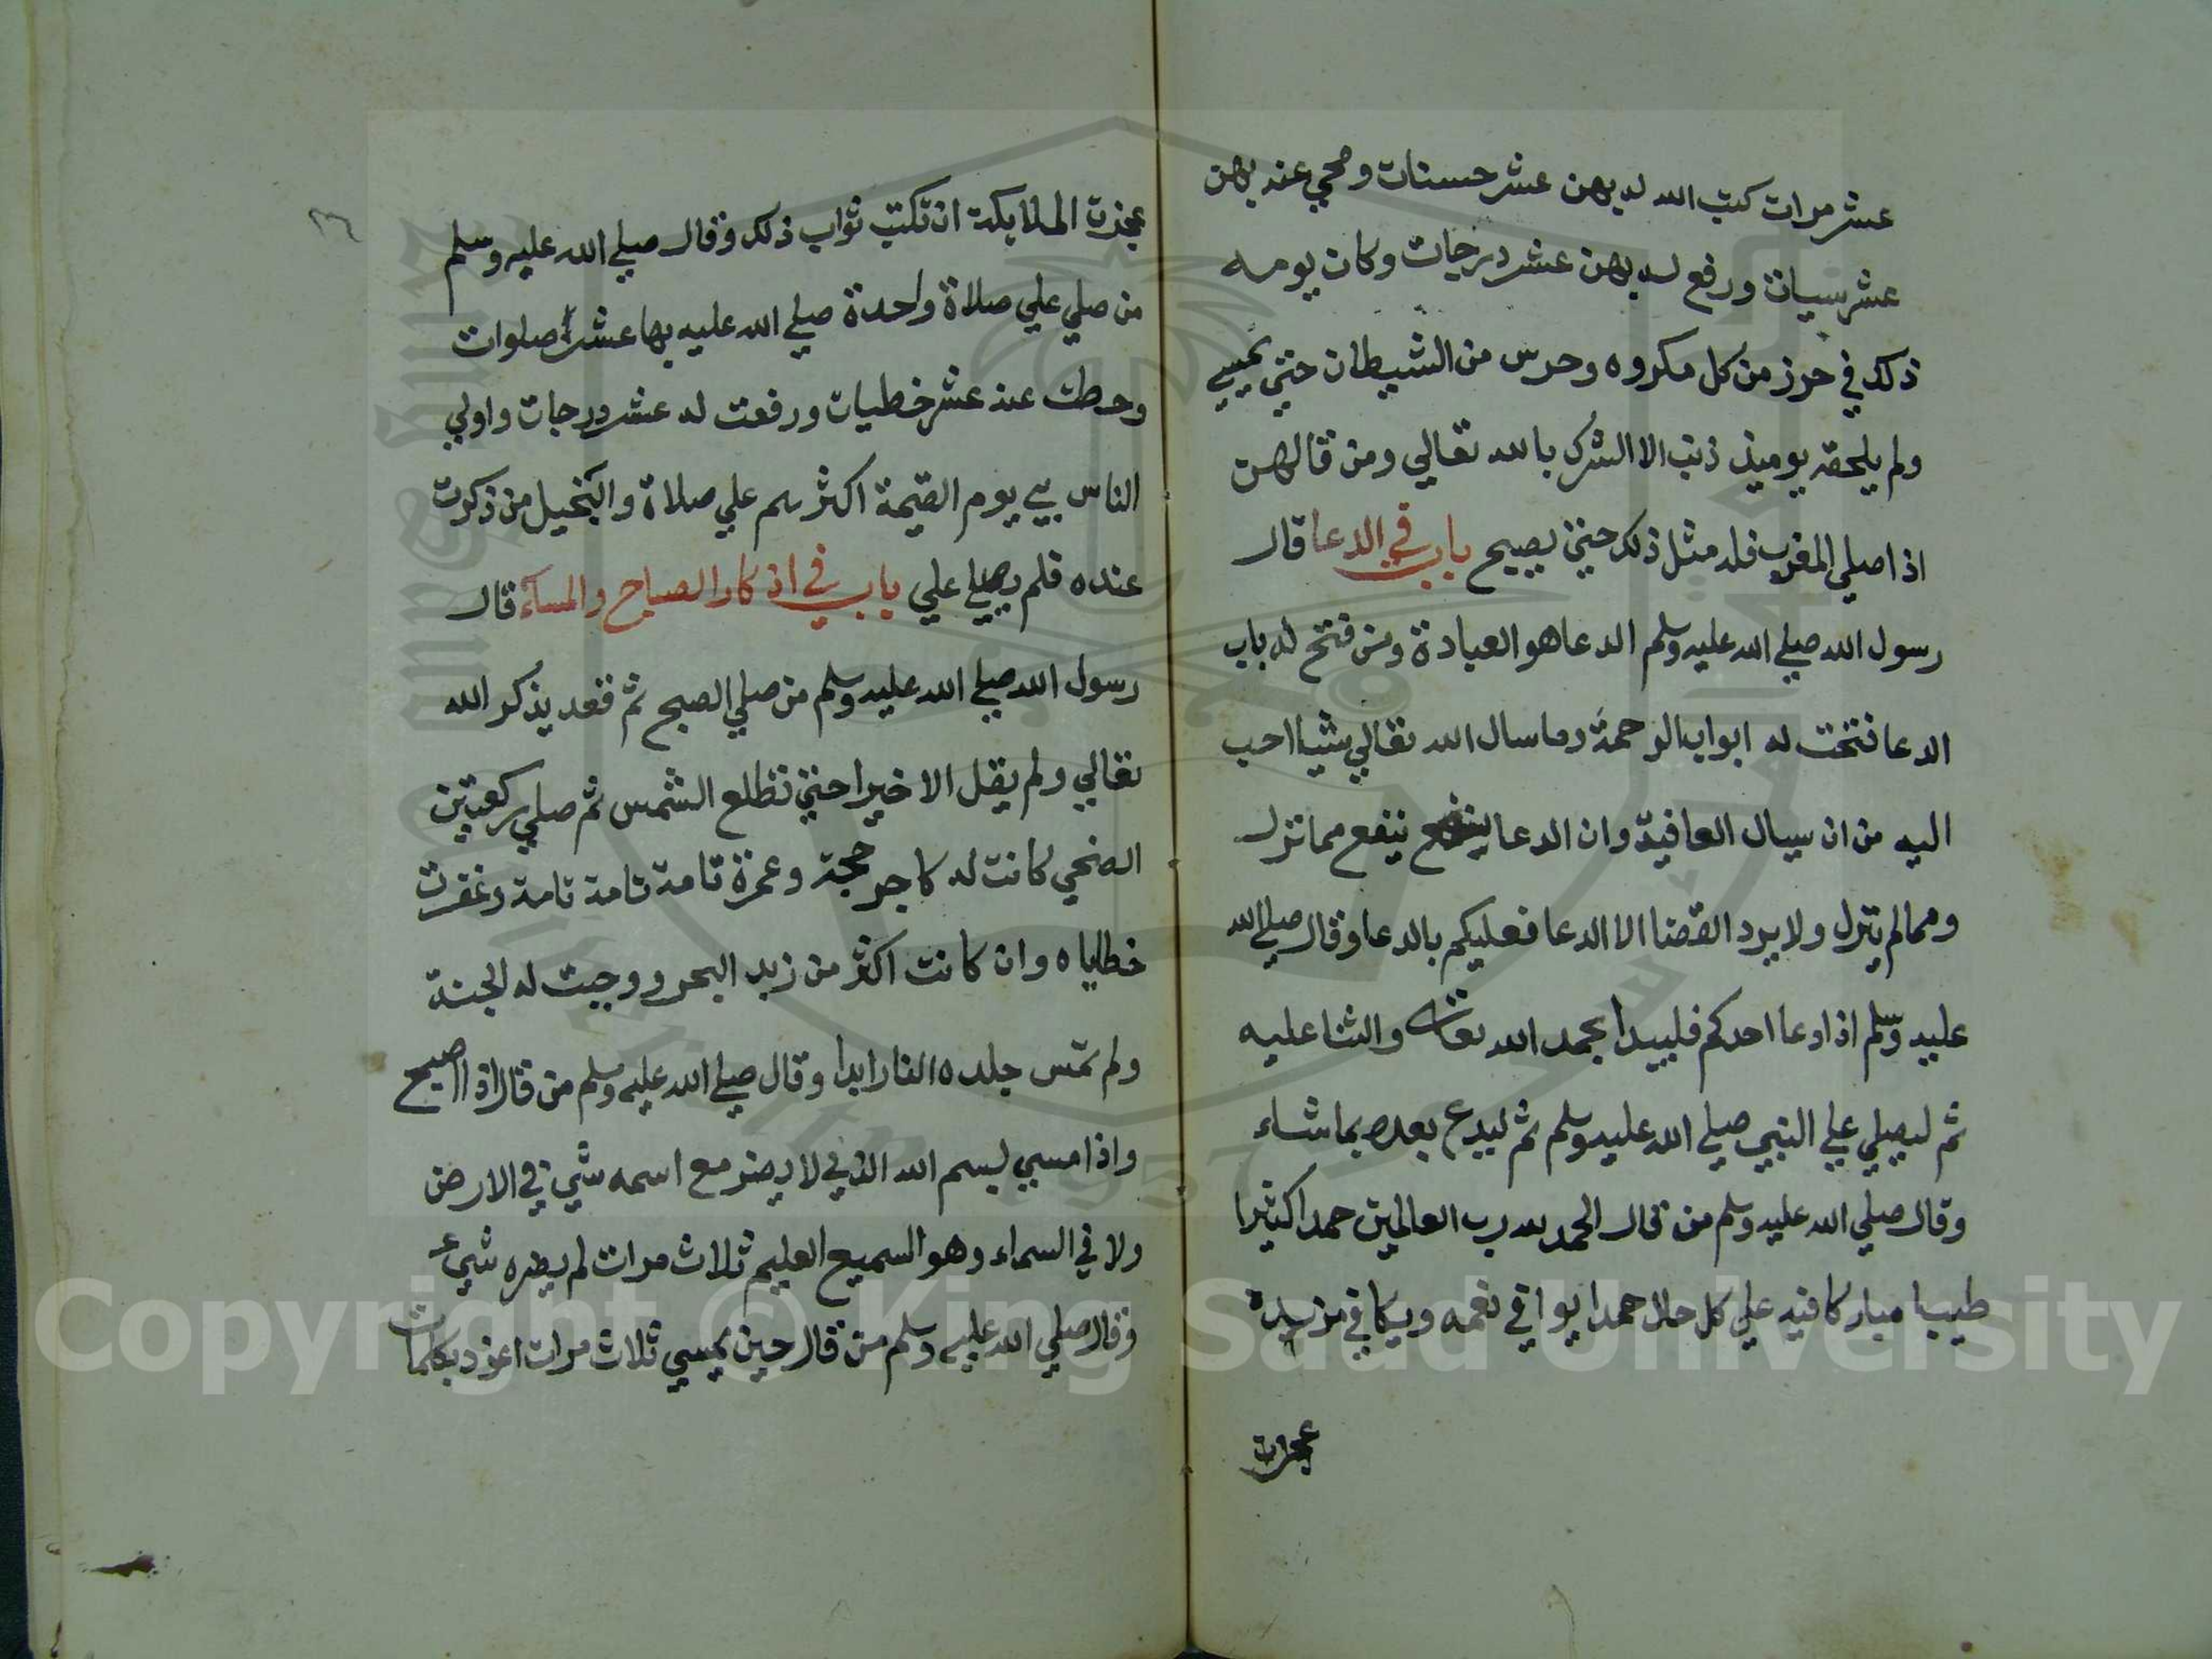 عشر مرات كتب الله له بهن عشر حسنات ومحي عنه بهن
عشر سيات ورفع له بهن عشر درجات وكان يومه
ذلك في حرز من كل مكروه وحرس من الشيطان حتي يمسي
ولم يلحقه يوميذ ذنب الا الشرك بالله تعالي ومن قالهن
اذا صلي المغرب فله مثل ذلك حتي يصبح باب في الدعا قال
رسول الله صلي الله عليه وسلم الدعا هو العبادة ومن فتح له باب
الدعا فتحت له ابواب الرحمة وما سال الله تعالي شيا احب
اليه من ان يسال العافية وان الدعا ينفع مما نزل
ومما لم ينزل ولا يرد القضا الا الدعا فعليكم بالدعا وقال صلي الله
عليه وسلم اذا دعا احدكم فليبدا بحمد الله تعالي والثنا عليه
ثم ليصلي علي النبي صلي الله عليه وسلم ثم ليدع بعده بما شاء
وقال صلي الله عليه وسلم من قال الحمد لله رب العالمين حمدا كثيرا
طيبا مباركا فيه علي كل حال حمدا يوافي نعمه ويكافي مزيده
عجزت
٢٦
عجزت الملايكة ان تكتب ثواب ذلك وقال صلي الله عليه وسلم
من صلي علي صلاة واحدة صلي الله عليه بها عشرا صلوات
وحطت عنه عشر خطيات ورفعت له عشر درجات واولي
الناس بي يوم القيمة اكثرهم علي صلاة والبخيل من ذكرت
عنده فلم يصلي علي باب في اذكار الصباح والمساء قال
رسول الله صلي الله عليه وسلم من صلي الصبح ثم قعد يذكر الله
تعالي ولم يقل الا خيرا حتي تطلع الشمس ثم صلي ركعتين
الضحي كانت له كاجر حجة وعمرة تامة تامة تامة وغفرت
خطاياه وان كانت اكثر من زبد البحر ووجبت له الجنة
ولم تمس جلده النار ابدا وقال صلي الله عليه وسلم من قال اذا اصبح
واذا امسي بسم الله الذي لا يضر مع اسمه شي في الارض
ولا في السماء وهو السميع العليم ثلاث مرات لم يضره شيء
وقال صلي الله عليه وسلم من قال حين يمسي ثلاث مرات اعوذ بكلمات
Copyright © King Saud University